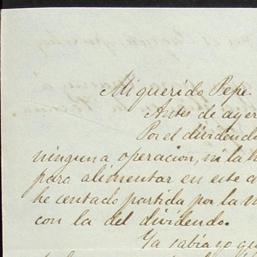 Mi querido Pepe.
Antes de ayer
Por el dividendo
ninguna operacion, ni la h
para alimentar en este a
he sentado partida por la m
con la del dividendo.
Ya sabia yo qu